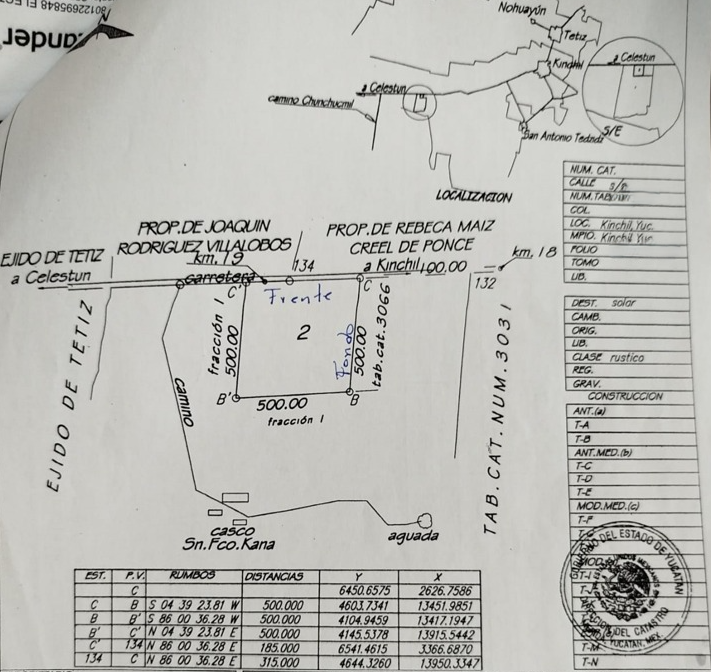 8012269584B
ander
Nohuayún
Tetiz
Kinchil
a Celestun
a Celestun
camino Chunchucmil
San Antonio Tedzidz
S/E
LOCALIZACION
NUM. CAT.
CALLE s/c
NUM.TAB
COL.
LOC. Kinchil, Yuc.
MPIO. Kinchil Yuc
FOLIO
TOMO
LIB.
PROP.DE JOAQUIN
RODRIGUEZ VILLALOBOS
PROP.DE REBECA MAIZ
CREEL DE PONCE
EJIDO DE TETIZ
a Celestun
km. 19
carretera
134
a Kinchil
400.00
km. 18
132
C'
Frente
C
fracción I
500.00
2
Fondo
500.00
tab.cat.3066
B'
500.00
B
fracción I
EJIDO DE TETIZ
camino
TAB.CAT.NUM.3031
casco
Sn.Fco.Kana
aguada
DEST. solar
CAMB.
ORIG.
LIB.
CLASE rustico
REG.
GRAV.
CONSTRUCCION
ANT.(a)
T-A
T-B
ANT.MED.(b)
T-C
T-D
T-E
MOD.MED.(c)
T-F
MOD.
T-I
T-J
T-M
T-N
GOBIERNO DEL ESTADO DE YUCATAN
ESTADOS UNIDOS MEXICANOS
DIRECCION DEL CATASTRO
YUCATAN, MEX.
EST. P.V. RUMBOS DISTANCIAS Y X
C 6450.6575 2626.7586
C B S 04 39 23.81 W 500.000 4603.7341 13451.9851
B B' S 86 00 36.28 W 500.000 4104.9459 13417.1947
B' C' N 04 39 23.81 E 500.000 4145.5378 13915.5442
C' 134 N 86 00 36.28 E 185.000 6541.4615 3366.6870
134 C N 86 00 36.28 E 315.000 4644.3260 13950.3347